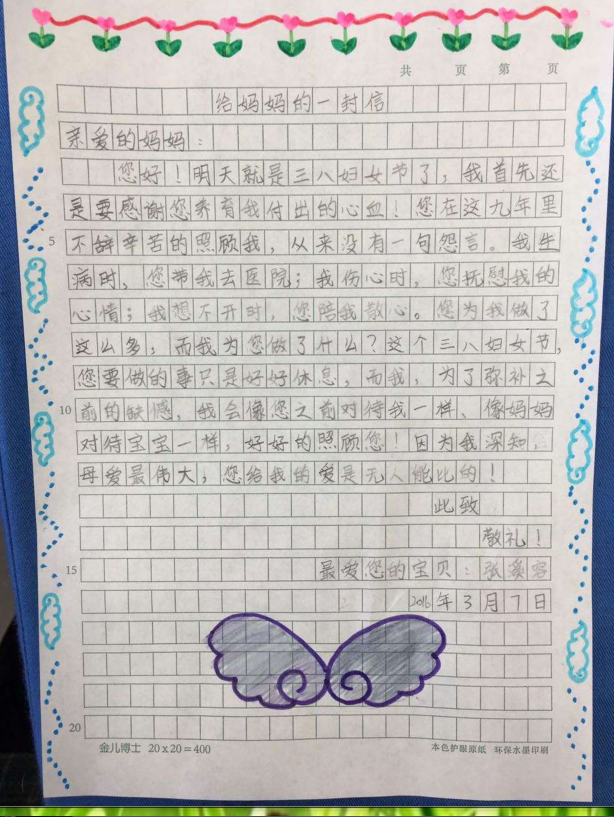 共 页 第 页
给妈妈的一封信
亲爱的妈妈：
您好！明天就是三八妇女节了，我首先还
是要感谢您养育我付出的心血！您在这九年里
5 不辞辛苦的照顾我，从来没有一句怨言。我生
病时，您带我去医院；我伤心时，您抚慰我的
心情；我想不开时，您陪我散心。您为我做了
这么多，而我为您做了什么？这个三八妇女节，
您要做的事只是好好休息，而我，为了弥补之
10 前的缺憾，我会像您之前对待我一样，像妈妈
对待宝宝一样，好好的照顾您！因为我深知，
母爱最伟大，您给我的爱是无人能比的！
此致
敬礼！
15 最爱您的宝贝：张溪容
2016年3月7日
20
金儿博士 20x20=400 本色护眼原纸 环保水墨印刷